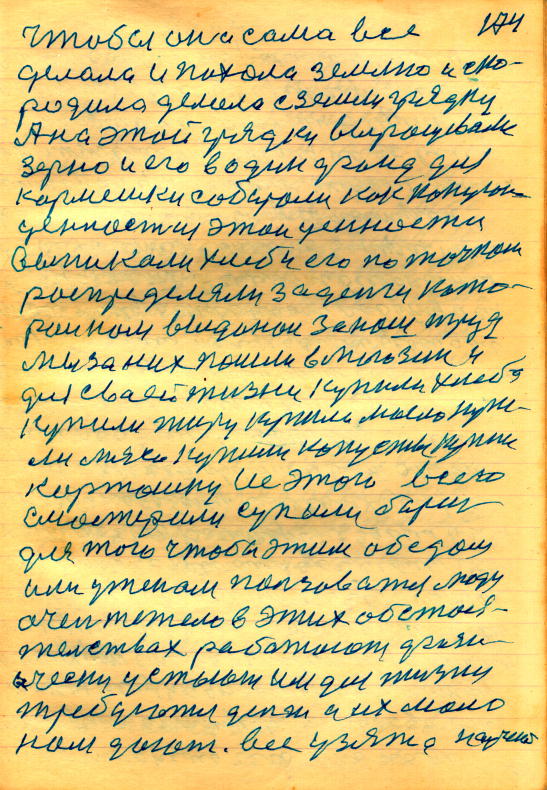 174
чтобы она сама все
делала и похола землю и ско-
родила делала с земли грядку
А на этой грядки выращували
зерно и его водин фонд для
кормешки собирали как
ценностия этои ценности
выпикали хлеб и его по точкам
роспределяли за денги кото-
раи нам выданои за наш труд
мы за них пошли в могозин и
для сваей жизни купили хлеба
купили жиру купила масло купи-
ли мяса купили копусты купили
картошку ис этого всего
смостирили суп или барщ
для того чтобы этим обедом
или ужепом ползоватя люду
очен тежело в этих обстоя-
телствах работают физи-
чески устают им для жизни
требуютя денги а их мало
нам дают. все узято научно